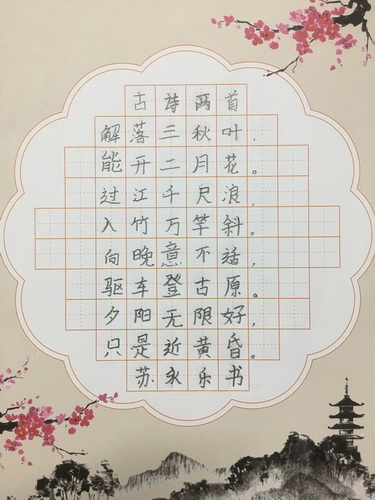 古诗两首
解落三秋叶,
能开二月花。
过江千尺浪,
入竹万竿斜。
向晚意不适,
驱车登古原。
夕阳无限好,
只是近黄昏。
苏永乐书